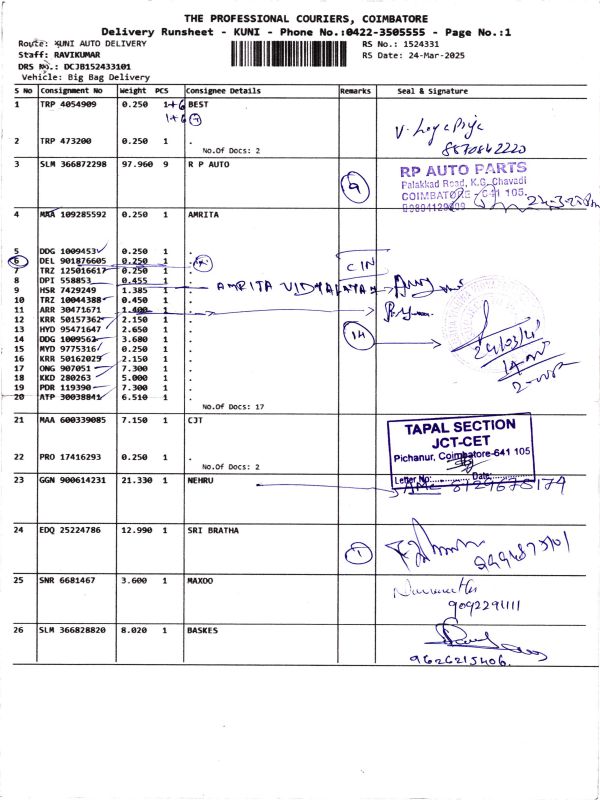 THE PROFESSIONAL COURIERS, COIMBATORE
Delivery Runsheet - KUNI - Phone No.:0422-3505555 - Page No.:1
Route: KUNI AUTO DELIVERY
RS No.: 1524331
Staff: RAVIKUMAR
RS Date: 24-Mar-2025
DRS No.: DCJB152433101
Vehicle: Big Bag Delivery
S No Consignment No Weight PCS Consignee Details Remarks Seal & Signature
1 TRP 4054909 0.250 1+6 BEST
1+6
2 TRP 473200 0.250 1 .
8870842220
No.Of Docs: 2
3 SLM 366872298 97.960 9 R P AUTO
9
RP AUTO PARTS
Palakkad Road, K.G. Chavadi
COIMBATORE - 641 105.
4 MAA 109285592 0.250 1 AMRITA
5 DDG 1009453 0.250 1 .
6 DEL 901876605 0.250 1 .
CIN
7 TRZ 125016617 0.250 1 .
8 DPI 558853 0.455 1 .
9 HSR 7429249 1.385 1 . AMRITA VIDYALAYAM
10 TRZ 10044388 0.450 1 .
11 ARR 30471671 1.400 1 .
12 KRR 50157362 2.150 1 .
13 HYD 95471647 2.650 1 .
14
14 DDG 1009562 3.680 1 .
24/03/25
15 MYD 9775316 0.250 1 .
16 KRR 50162029 2.150 1 .
17 ONG 907051 7.300 1 .
18 KKD 280263 5.000 1 .
19 PDR 119390 7.300 1 .
20 ATP 30038841 6.510 1 .
No.Of Docs: 17
21 MAA 600339085 7.150 1 CJT
TAPAL SECTION
JCT-CET
Pichanur, Coimbatore-641 105
Letter No:............ Date:............
22 PRO 17416293 0.250 1 .
No.Of Docs: 2
23 GGN 900614231 21.330 1 NEHRU
8129678174
24 EDQ 25224786 12.990 1 SRI BRATHA
1
25 SNR 6681467 3.600 1 MAXDO
9092291111
26 SLM 366828820 8.020 1 BASKES
9626215406.